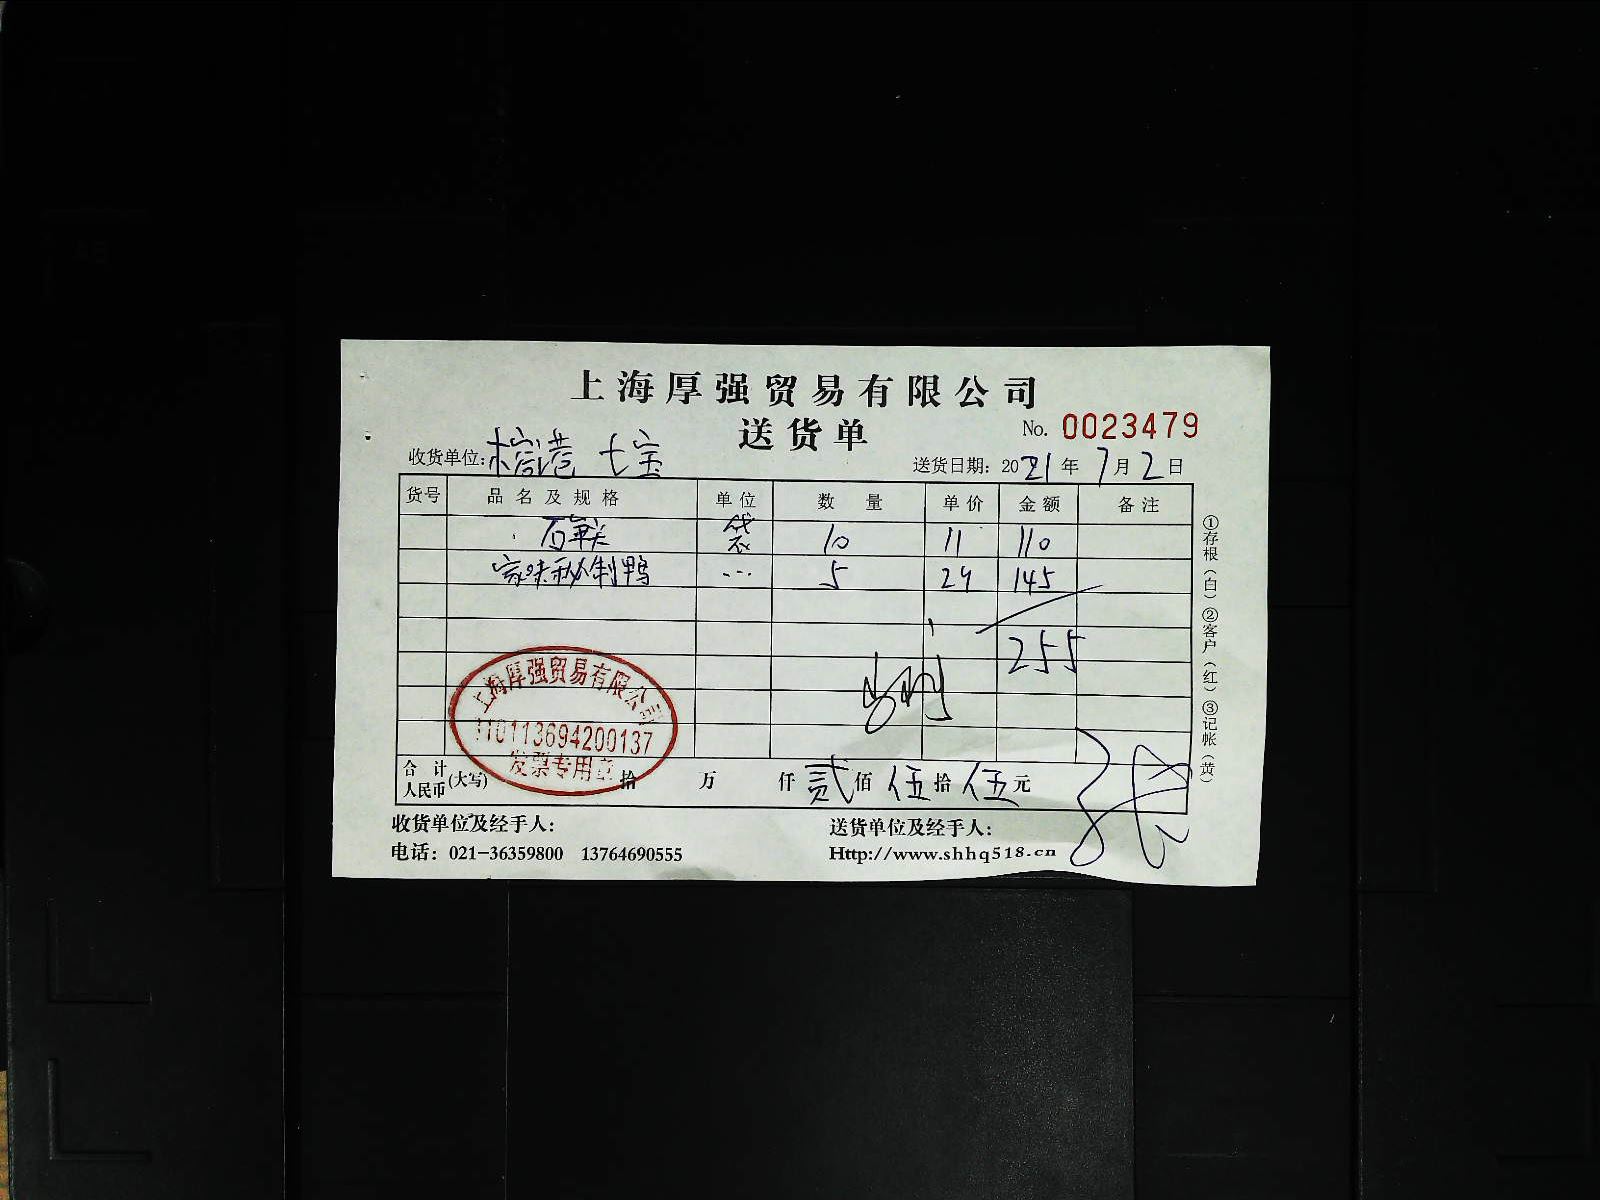 上海厚强贸易有限公司
送货单
No. 0023479
收货单位: 港 七宝
送货日期: 2021年7月2日
货号 品名及规格 单位 数量 单价 金额 备注
袋 10 11 110
家味秘制鸭 ... 5 29 145
255
上海厚强贸易有限公司
110113694200137
发票专用章
合计人民币(大写) 拾 万 仟 贰佰 伍拾 伍元
收货单位及经手人:
送货单位及经手人:
电话: 021-36359800 13764690555
Http://www.shhq518.cn
①存根(白) ②客户(红) ③记帐(黄)